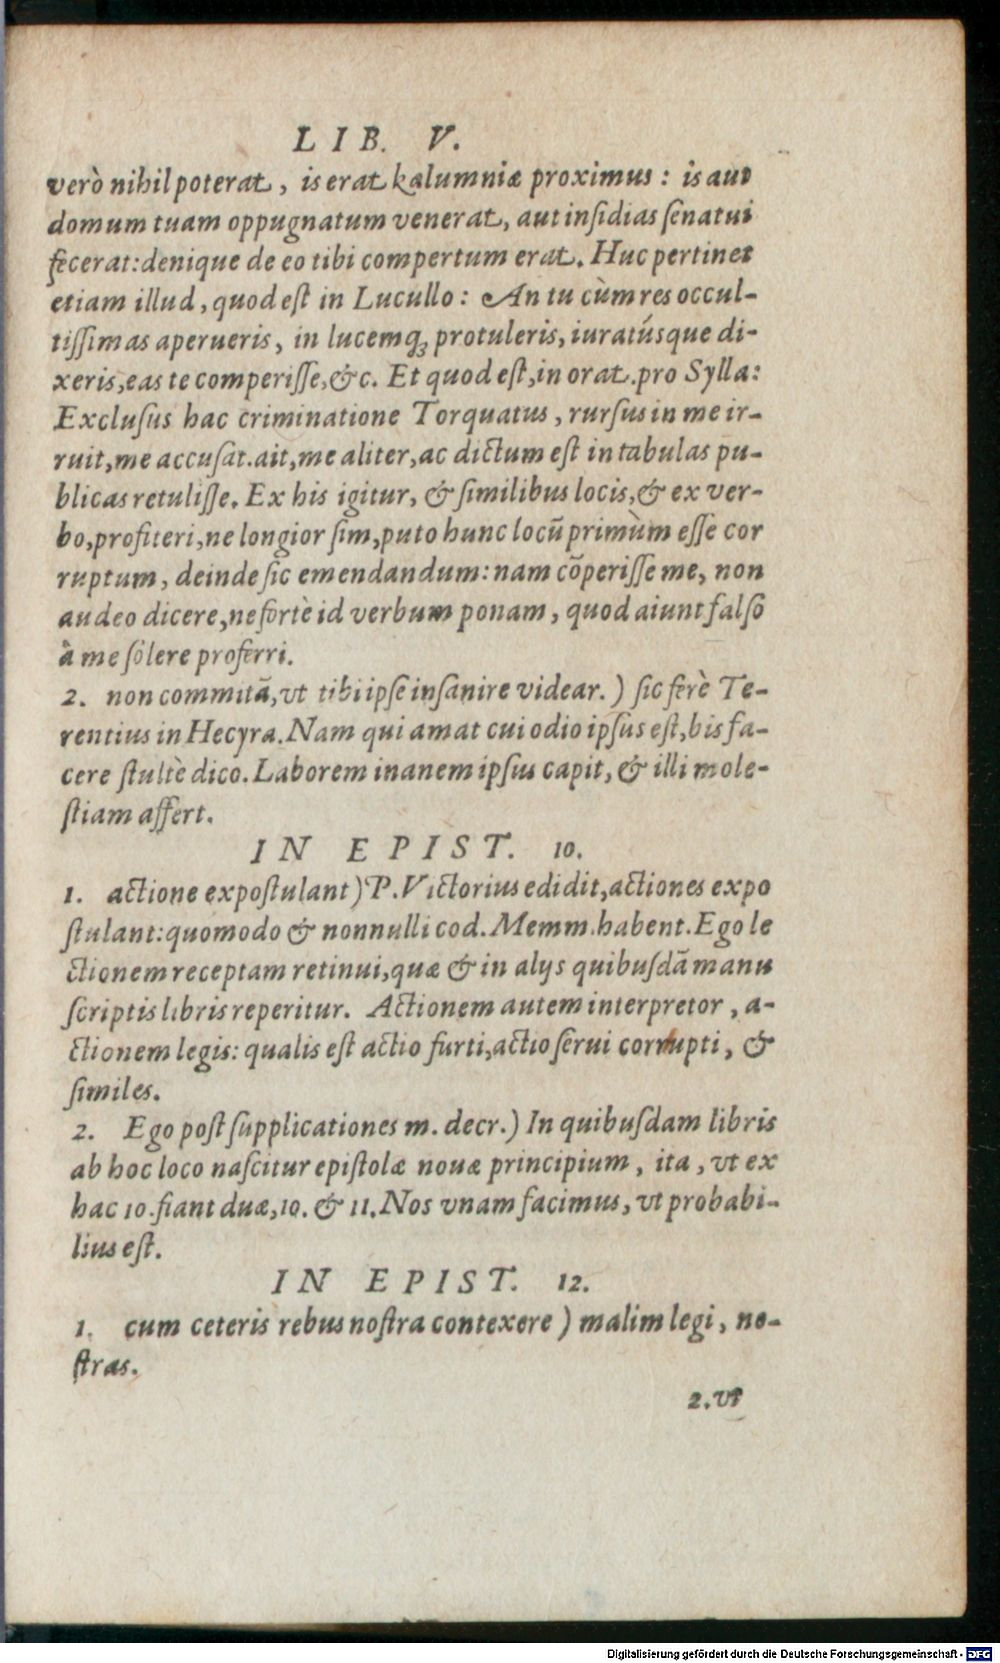 LIB. V.
verò nihil poterat, is erat kalumniæ proximus: is aut
domum tuam oppugnatum venerat, aut inſidias ſenatui
fecerat: denique de eo tibi compertum erat. Huc pertinet
etiam illud, quod eſt in Lucullo: An tu cùm res occul-
tiſſimas aperueris, in lucemq; protuleris, iuratúsque di-
xeris, eas te comperiſſe, &c. Et quod eſt, in orat. pro Sylla:
Excluſus hac criminatione Torquatus, rurſus in me ir-
ruit, me accuſat. ait, me aliter, ac dictum eſt in tabulas pu-
blicas retuliſſe. Ex his igitur, & ſimilibus locis, & ex ver-
bo, profiteri, ne longior ſim, puto hunc locū primùm eſſe cor
ruptum, deinde ſic emendandum: nam cōperiſſe me, non
audeo dicere, ne fortè id verbum ponam, quod aiunt falſo
à me ſolere proferri.
2. non committā, vt tibi ipſe inſanire videar.) ſic ferè Te-
rentius in Hecyra. Nam qui amat cui odio ipſus eſt, bis fa-
cere ſtultè dico. Laborem inanem ipſus capit, & illi mole-
ſtiam affert.
IN EPIST. 10.
1. actione expoſtulant) P. Victorius edidit, actiones expo
ſtulant: quomodo & nonnulli cod. Memm. habent. Ego le
ctionem receptam retinui, quæ & in alijs quibuſdā manu
ſcriptis libris reperitur. Actionem autem interpretor, a-
ctionem legis: qualis eſt actio furti, actio ſerui corrupti, &
ſimiles.
2. Ego poſt ſupplicationes m. decr.) In quibuſdam libris
ab hoc loco naſcitur epiſtolæ nouæ principium, ita, vt ex
hac 10. fiant duæ, 10. & 11. Nos vnam facimus, vt probabi-
lius eſt.
IN EPIST. 12.
1. cum ceteris rebus noſtra contexere) malim legi, no-
ſtras.
2. vt
Digitalisierung gefördert durch die Deutsche Forschungsgemeinschaft - DFG